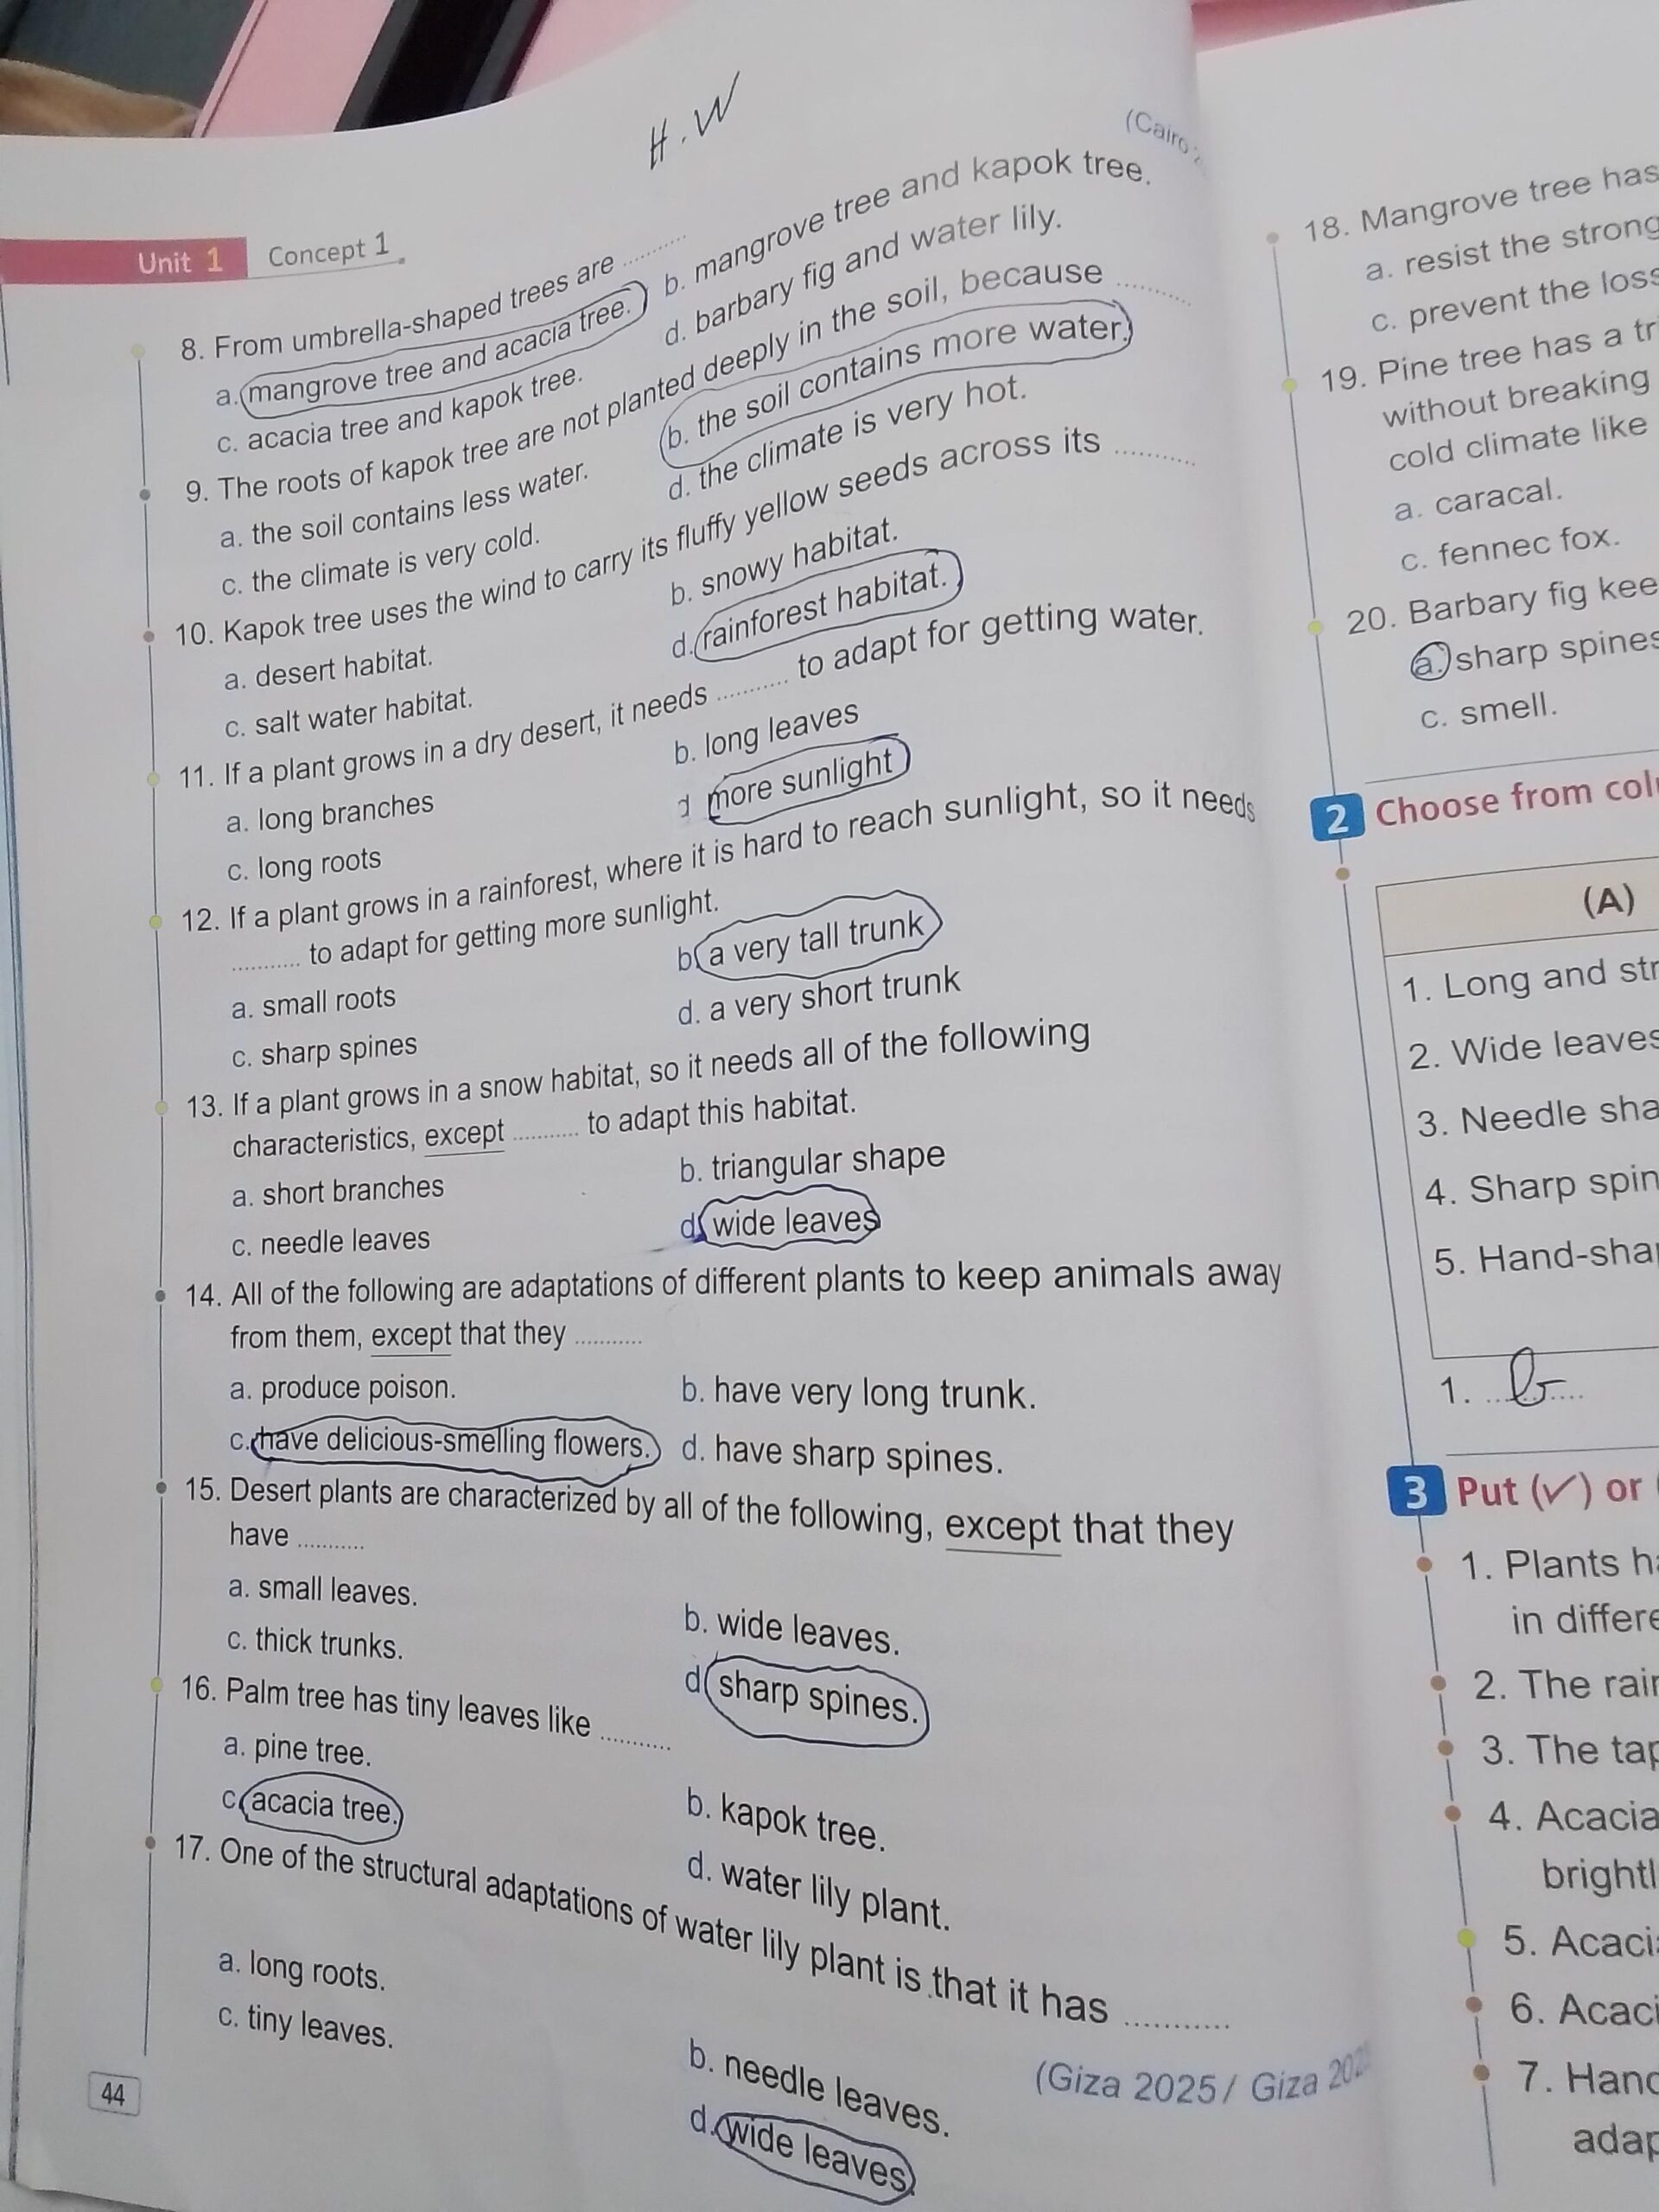 H.W
(Cairo
Unit 1 Concept 1
8. From umbrella-shaped trees are ..........
a. mangrove tree and acacia tree.
b. mangrove tree and kapok tree.
c. acacia tree and kapok tree.
d. barbary fig and water lily.
9. The roots of kapok tree are not planted deeply in the soil, because ..........
a. the soil contains less water.
b. the soil contains more water.
c. the climate is very cold.
d. the climate is very hot.
10. Kapok tree uses the wind to carry its fluffy yellow seeds across its ..........
a. desert habitat.
b. snowy habitat.
c. salt water habitat.
d. rainforest habitat.
11. If a plant grows in a dry desert, it needs .......... to adapt for getting water.
a. long branches
b. long leaves
c. long roots
d more sunlight
12. If a plant grows in a rainforest, where it is hard to reach sunlight, so it needs
.......... to adapt for getting more sunlight.
a. small roots
b. a very tall trunk
c. sharp spines
d. a very short trunk
13. If a plant grows in a snow habitat, so it needs all of the following
characteristics, except .......... to adapt this habitat.
a. short branches
b. triangular shape
c. needle leaves
d. wide leaves
14. All of the following are adaptations of different plants to keep animals away
from them, except that they ..........
a. produce poison.
b. have very long trunk.
c. have delicious-smelling flowers.
d. have sharp spines.
15. Desert plants are characterized by all of the following, except that they
have ..........
a. small leaves.
b. wide leaves.
c. thick trunks.
d. sharp spines.
16. Palm tree has tiny leaves like ..........
a. pine tree.
b. kapok tree.
c. acacia tree.
d. water lily plant.
17. One of the structural adaptations of water lily plant is that it has ..........
(Giza 2025 / Giza
a. long roots.
b. needle leaves.
c. tiny leaves.
d. wide leaves.
44
18. Mangrove tree has
a. resist the strong
c. prevent the loss
19. Pine tree has a
without breaking
cold climate like
a. caracal.
c. fennec fox.
20. Barbary fig
a. sharp spines
c. smell.
2 Choose from
(A)
1. Long and
2. Wide leaves
3. Needle
4. Sharp
5.
1. b
3 Put (✓) or
1. Plants
in
2. The
3. The
4. Acacia
5.
6.
7.